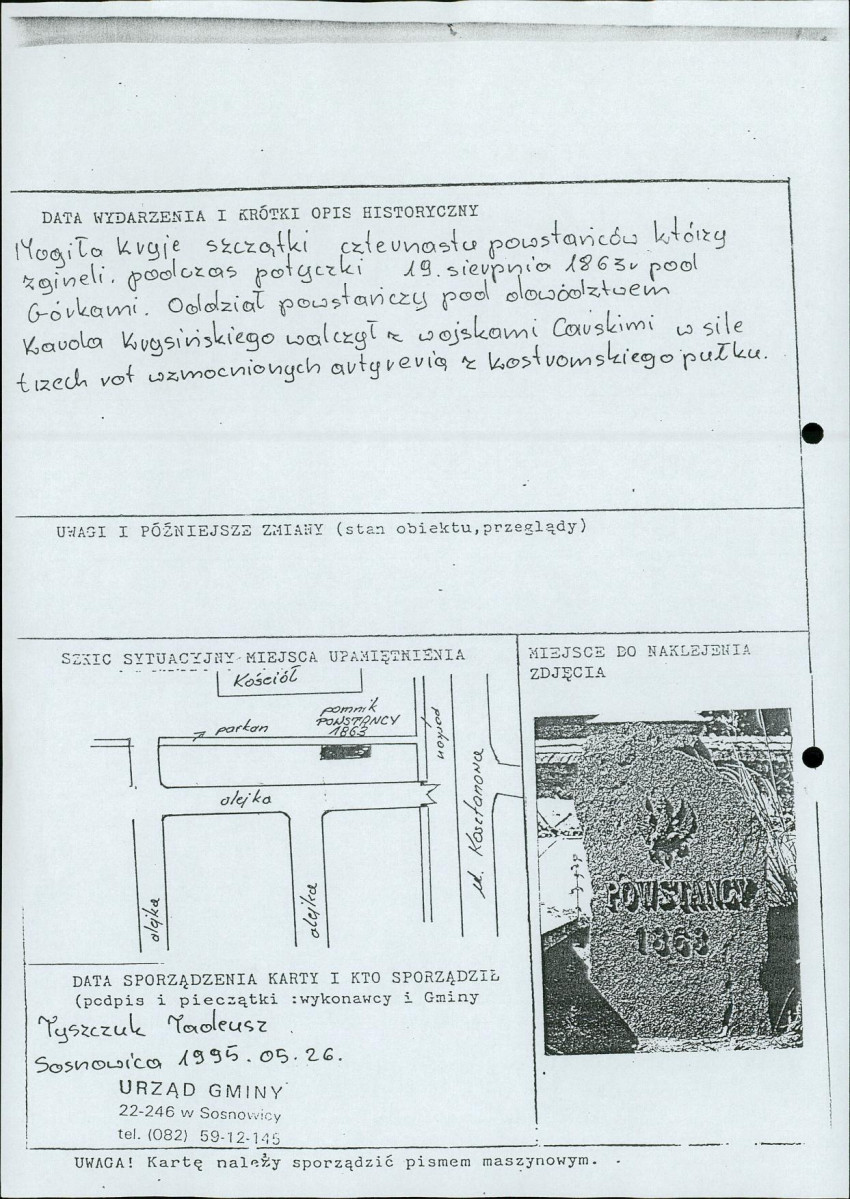 DATA WYDARZENIA I KRÓTKI OPIS HISTORYCZNY
Mogiła kryje szczątki czternastu powstańców którzy
zgineli. podczas potyczki 19. sierpnia 1863r pod
Górkami. Oddział powstańczy pod dowództwem
Karola Krysińskiego walczył z wojskami Carskimi w sile
trzech rot wzmocnionych artyrerią z kostromskiego pułku.
UWAGI I PÓŹNIEJSZE ZMIANY (stan obiektu,przeglądy)
SZKIC SYTUACYJNY MIEJSCA UPAMIĘTNIENIA
Kościół
pomnik
POWSTAŃCY
1863
parkan
parkan
alejka
ul. Kasztanowa
alejka
alejka
MIEJSCE DO NAKLEJENIA
ZDJĘCIA
POWSTAŃCY
1863
DATA SPORZĄDZENIA KARTY I KTO SPORZĄDZIŁ
(podpis i pieczątki :wykonawcy i Gminy
Tyszczuk Tadeusz
Sosnowica 1995.05.26.
URZĄD GMINY
22-246 w Sosnowicy
tel. (082) 59-12-145
UWAGA! Kartę należy sporządzić pismem maszynowym.